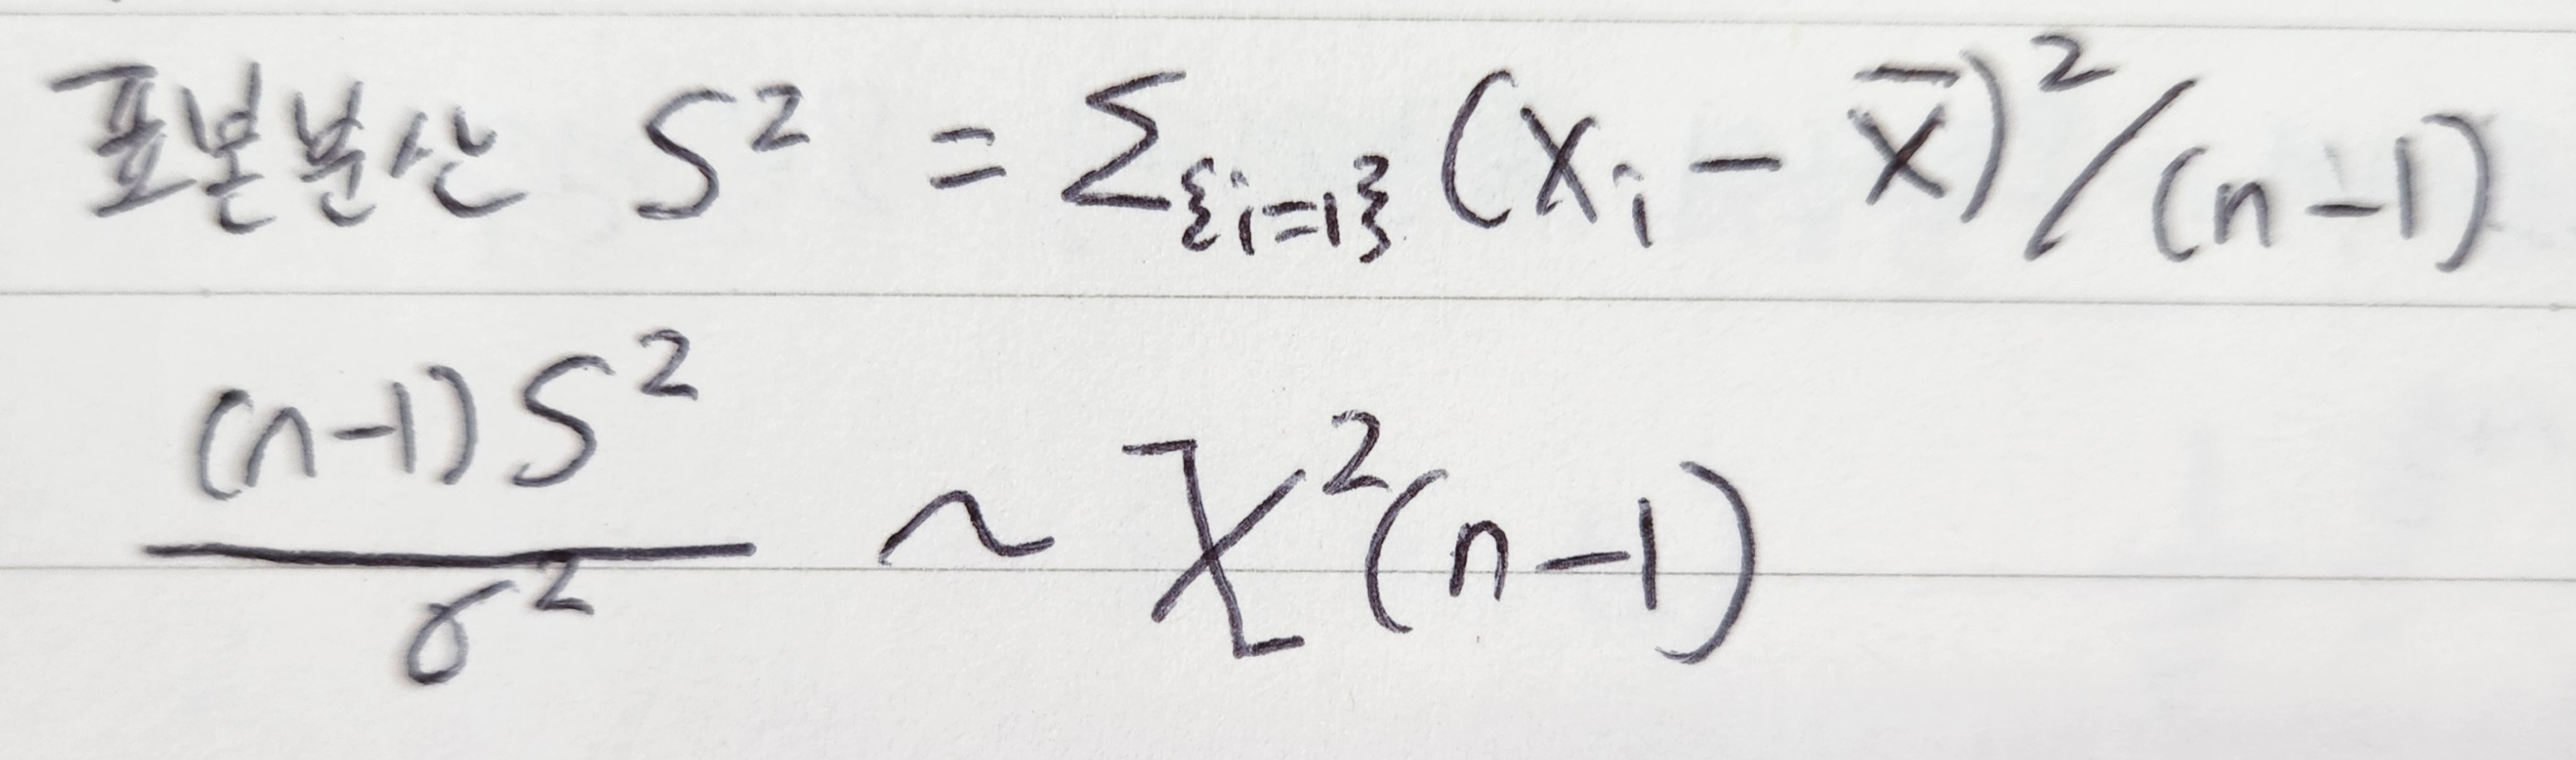 표본분산 S² = Σ_{i=1} (x_i − x̄)² / (n−1)
(n−1)S² / σ² ~ χ²(n−1)